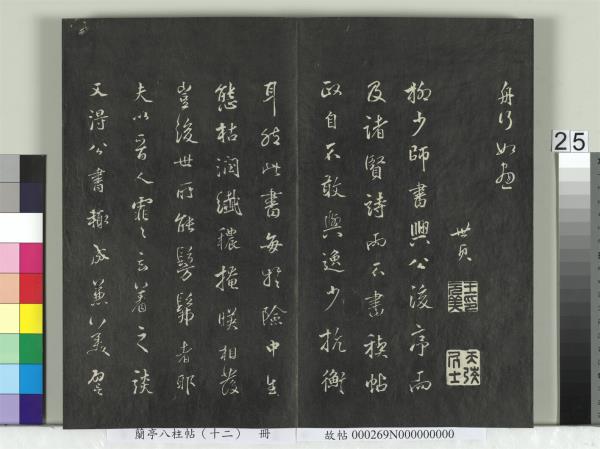 舟行如畫
世貞
天弢居士
柳少師書興公後序而
及諸賢詩而不書禊帖
政自不敢與逸少抗衡
耳然此書每於險中生
態枯潤纖穠掩映相發
豈後世所能髣髴者耶
夫以晉人霏霏玄著之談
又得公書輒成兼美
25
蘭亭八柱帖（十二） 冊
故帖 000269N000000000